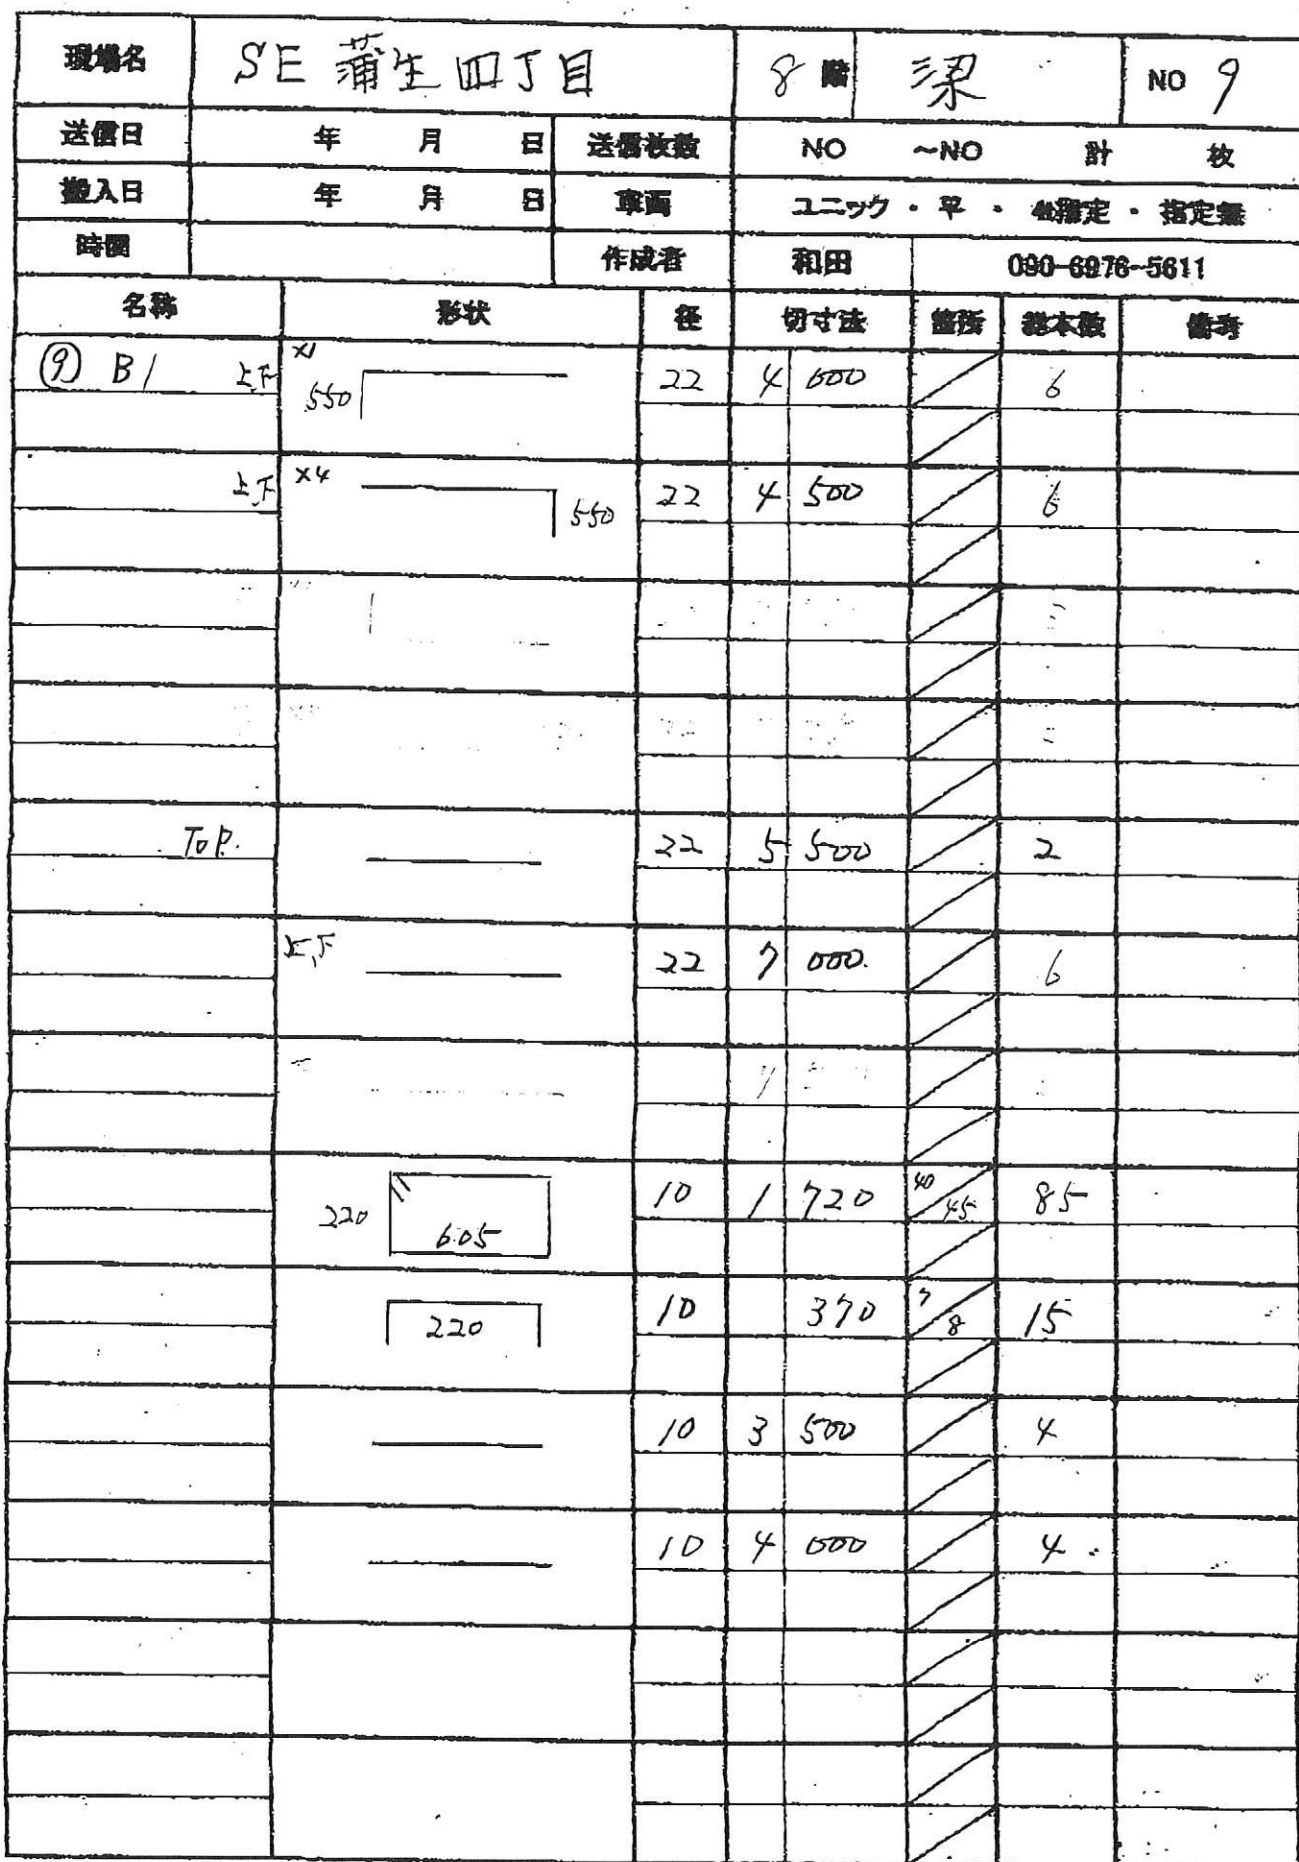 現場名 SE 蒲生四丁目 8 階 梁 NO 9
送信日 年 月 日 送信枚数 NO ～NO 計 枚
搬入日 年 月 日 車両 ユニック ・ 平 ・ 指定 ・ 指定無
時間 作成者 和田 090-6976-5611
名称 形状 径 切寸法 箇所 総本数 備考
⑨ B1 上下 X1 550 22 4 000 6
上下 X4 550 22 4 500 6
TOP. 22 5 500 2
上下 22 7 000. 6
220 605 10 1 720 40 45 85
220 10 370 7 8 15
10 3 500 4
10 4 000 4